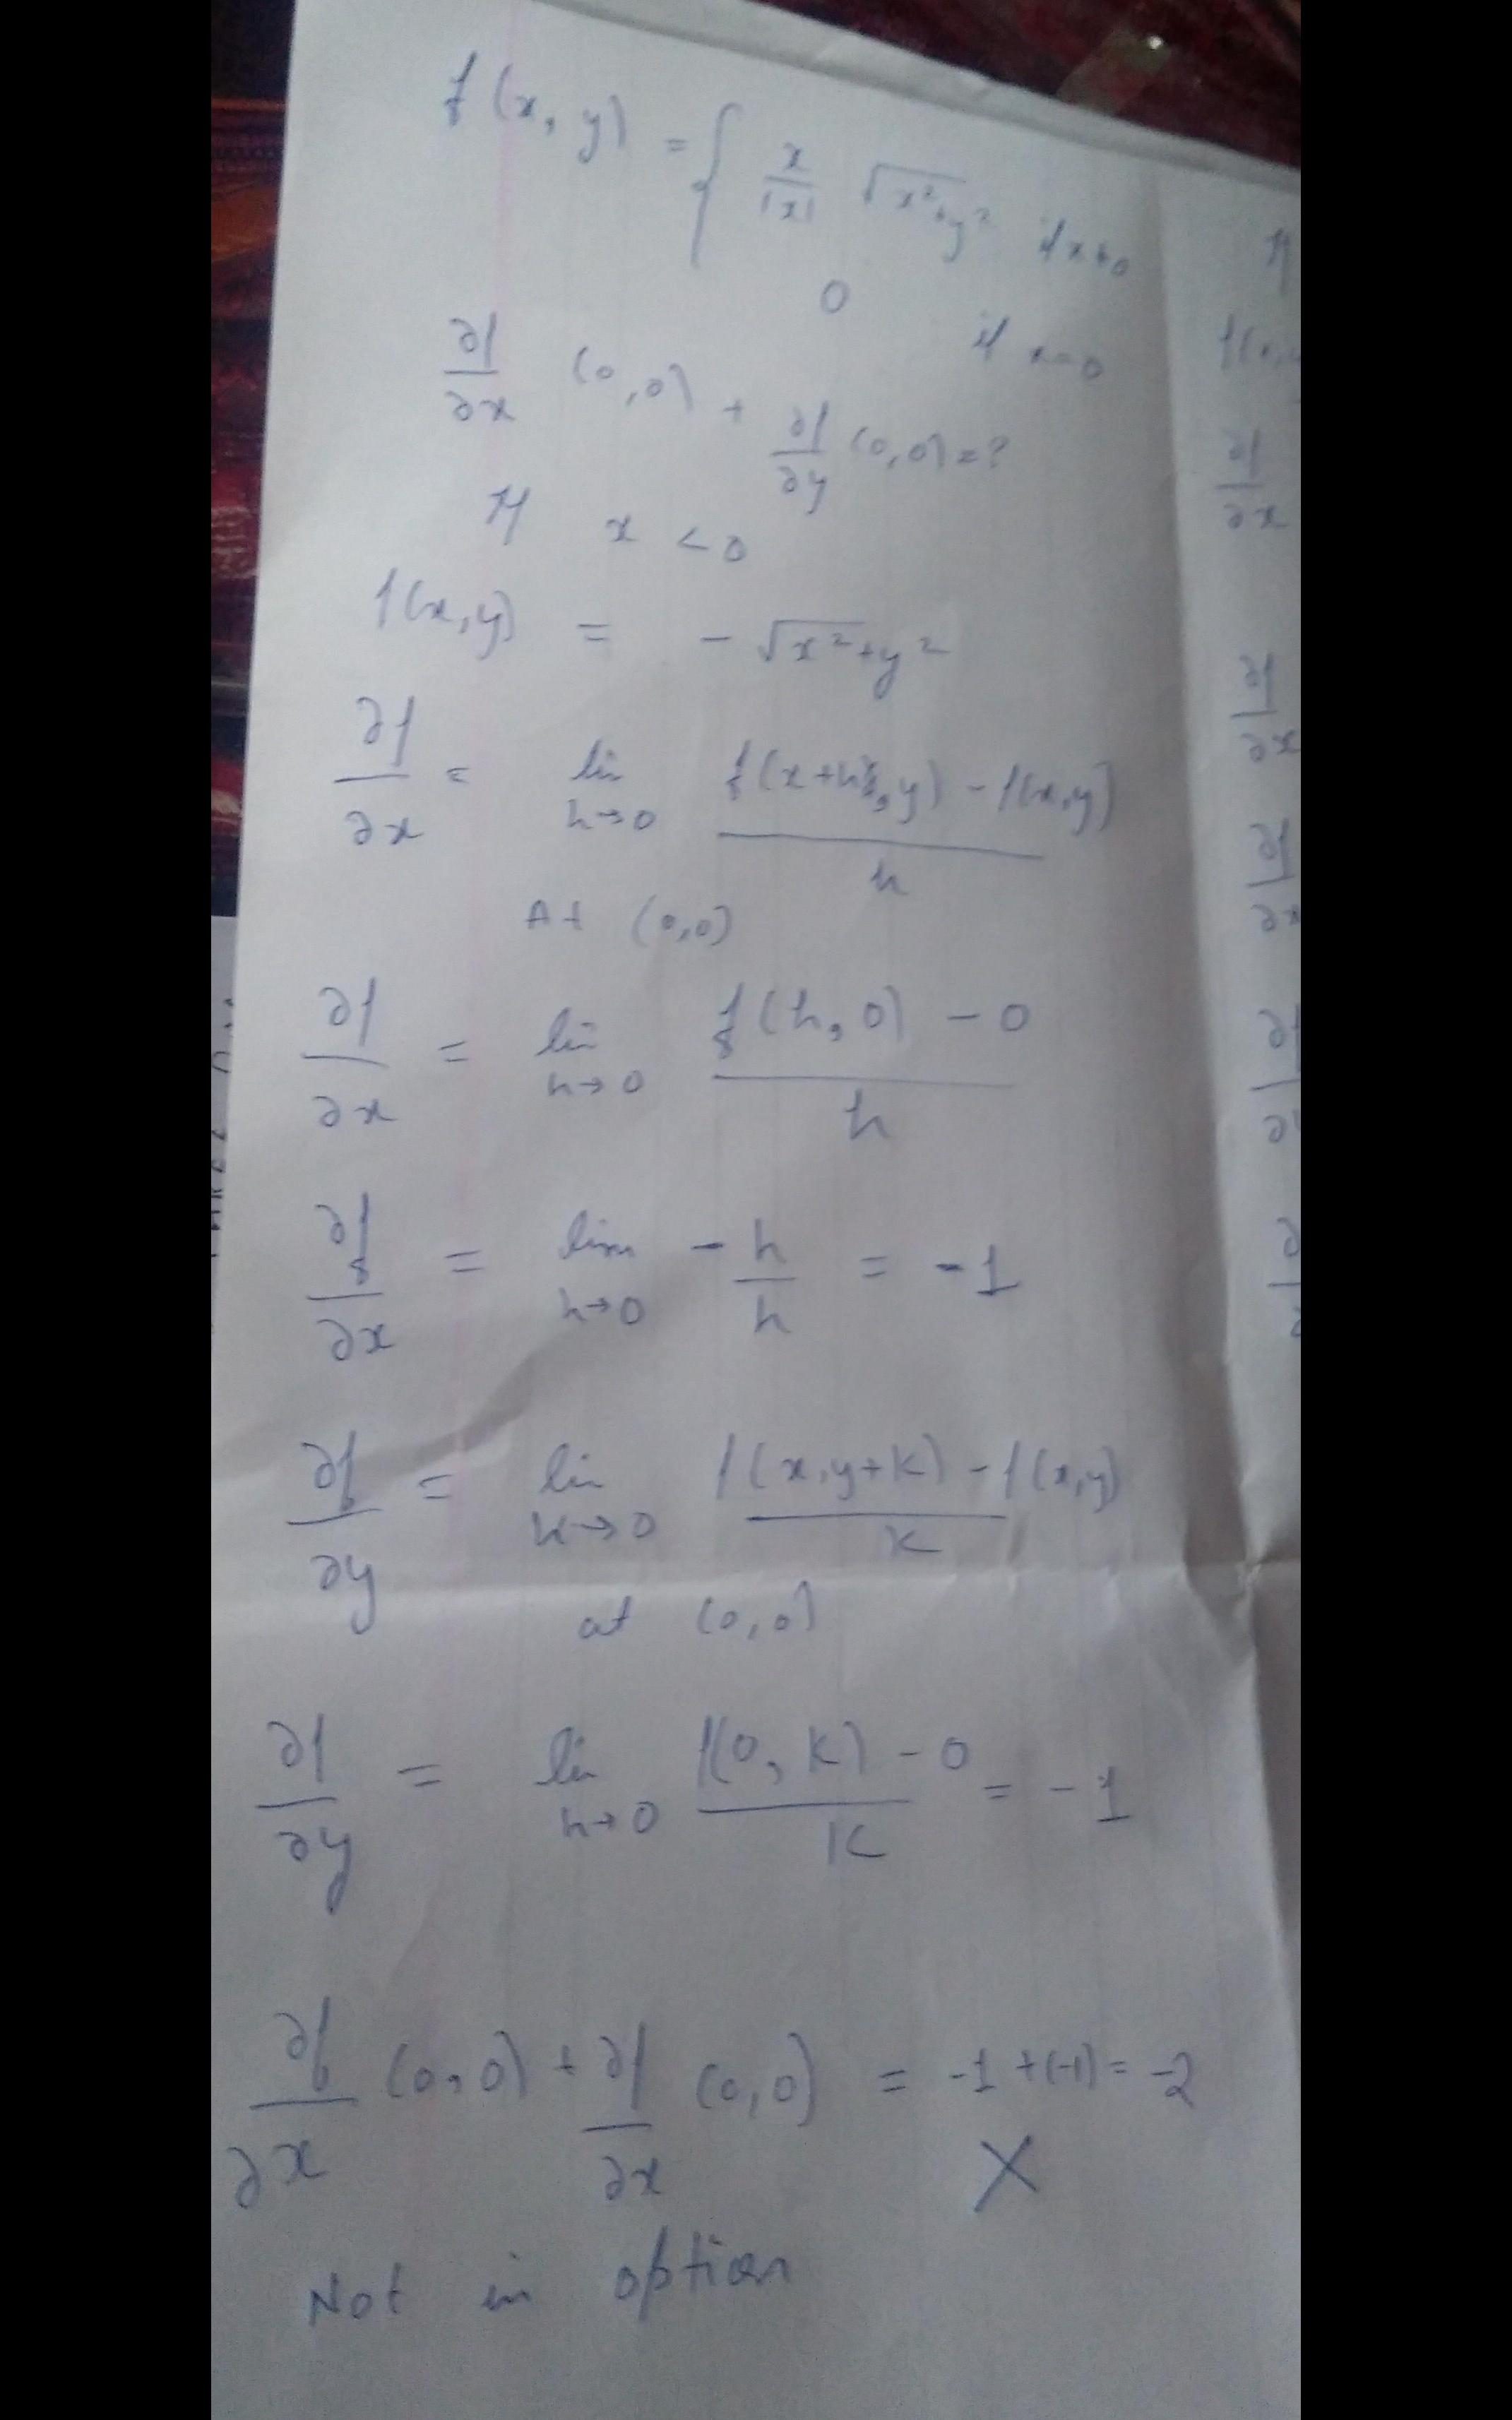 f(x, y) = { x/|x| √x²+y² if x≠0
0 if x=0
∂f/∂x (0,0) + ∂f/∂y (0,0) = ?
If x < 0
f(x,y) = - √x²+y²
∂f/∂x = lim h→0 f(x+h, y) - f(x,y) / h
At (0,0)
∂f/∂x = lim h→0 f(h, 0) - 0 / h
∂f/∂x = lim h→0 - h/h = -1
∂f/∂y = lim k→0 f(x,y+k) - f(x,y) / k
at (0,0)
∂f/∂y = lim h→0 f(0, k) - 0 / k = -1
∂f/∂x (0,0) + ∂f/∂x (0,0) = -1 + (-1) = -2
X
Not in option